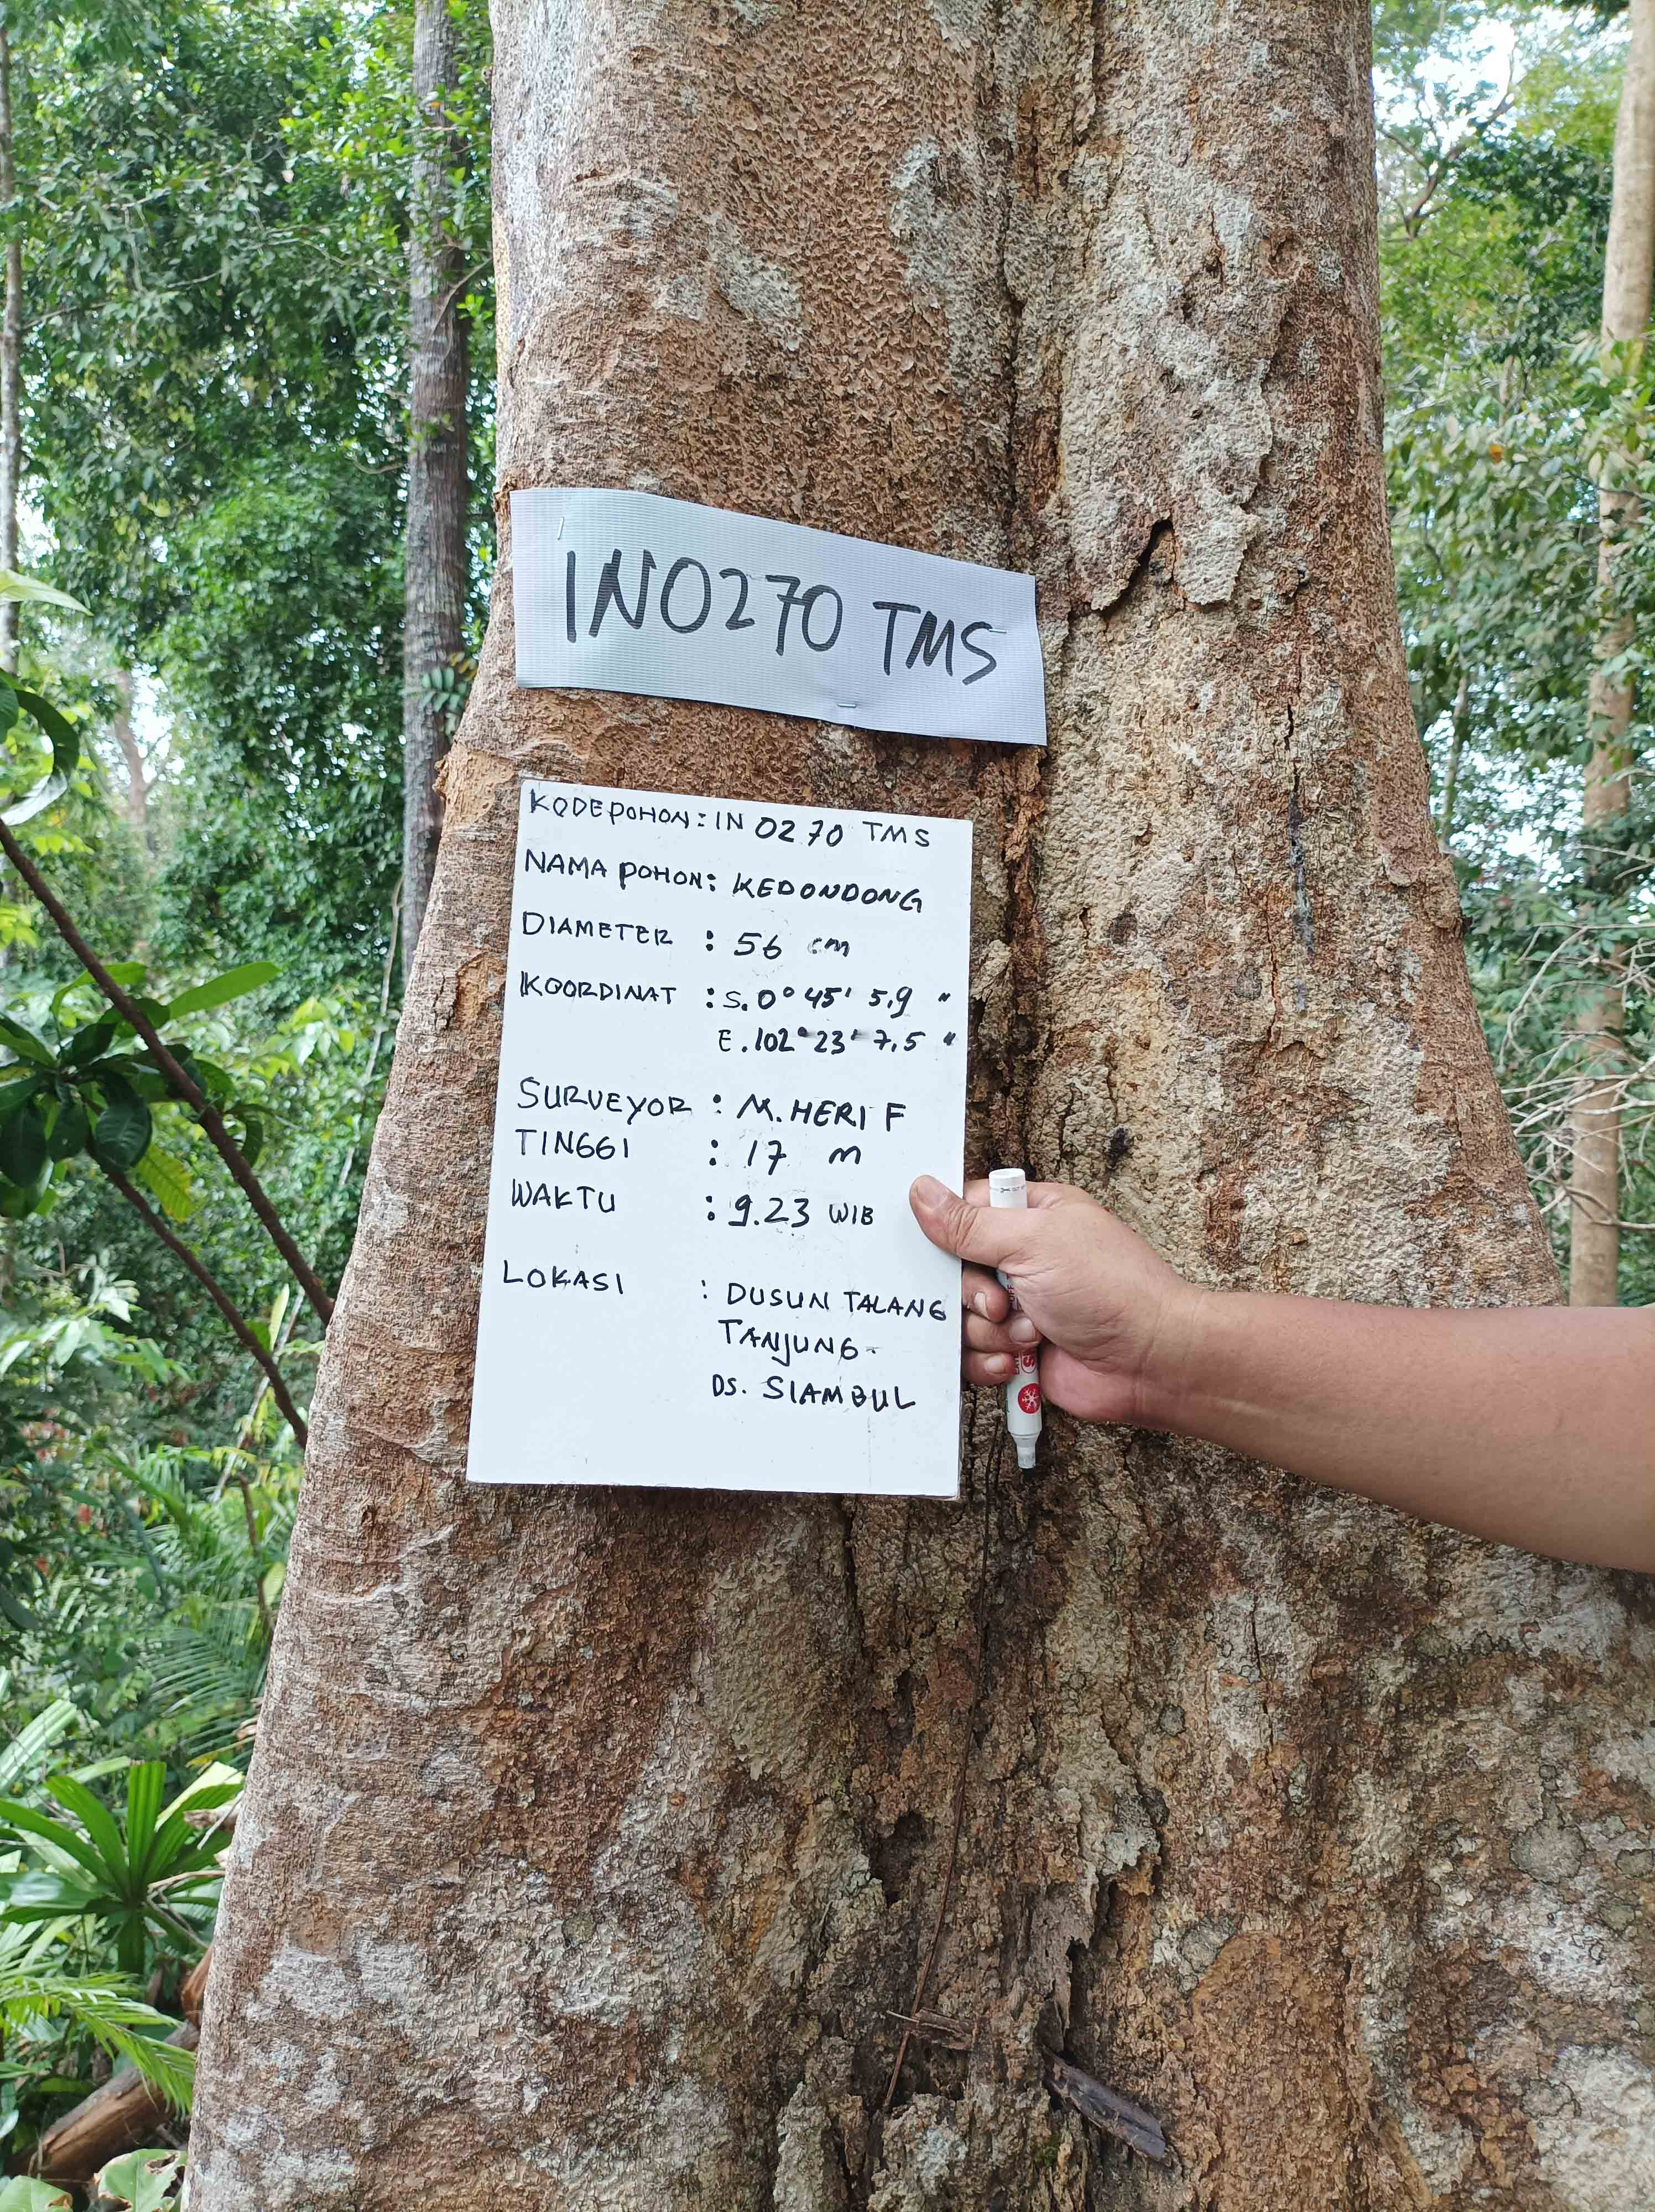 IN0270 TMS
KODE POHON : IN 0270 TMS
NAMA POHON : KEDONDONG
DIAMETER : 56 cm
KOORDINAT : S. 0° 45' 5.9 "
E. 102° 23' 7.5 "
SURVEYOR : M. HERI F
TINGGI : 17 m
WAKTU : 9.23 WIB
LOKASI : DUSUN TALANG
TANJUNG.
DS. SIAMBUL